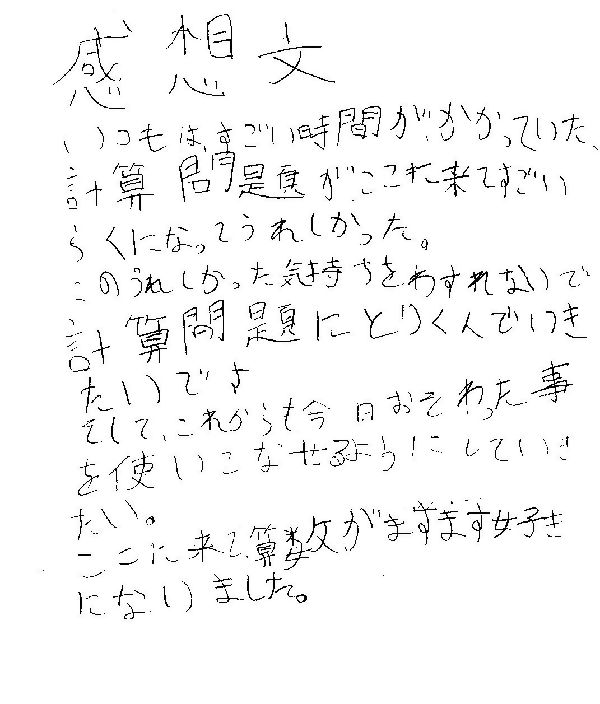 感想文
いつもは、すごい時間が、かかっていた、
計算問題がここに来てすごい
らくになってうれしかった。
このうれしかった気持ちをわすれないで
計算問題にとりくんでいき
たいです
そして、これからも今日おそわった事
を使いこなせるようにしていき
たい。
ここに来て、算数がますます好き
になりました。